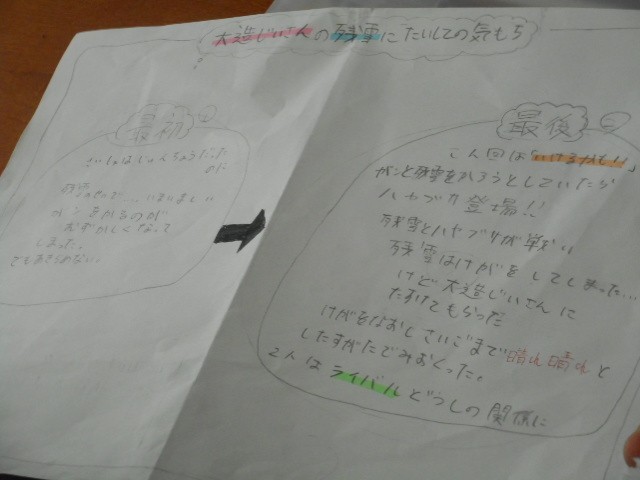 大造じいさんの残雪にたいしての気もち
最初
さいしょはじゅんちょうだった
のに
残雪のせいで
ガンをかるのが
むずかしくなって
しまった。
でもあきらめない。
最後
こん回は「いけるかも!!」
ガンと残雪をかろうとしていたら
ハヤブサ登場!!
残雪とハヤブサが戦い
残雪はけがをしてしまった…
けど大造じいさんに
たすけてもらった
けがをなおしさいごまで晴れ晴れと
したすがたでみおくった。
2人はライバルどうしの関係に